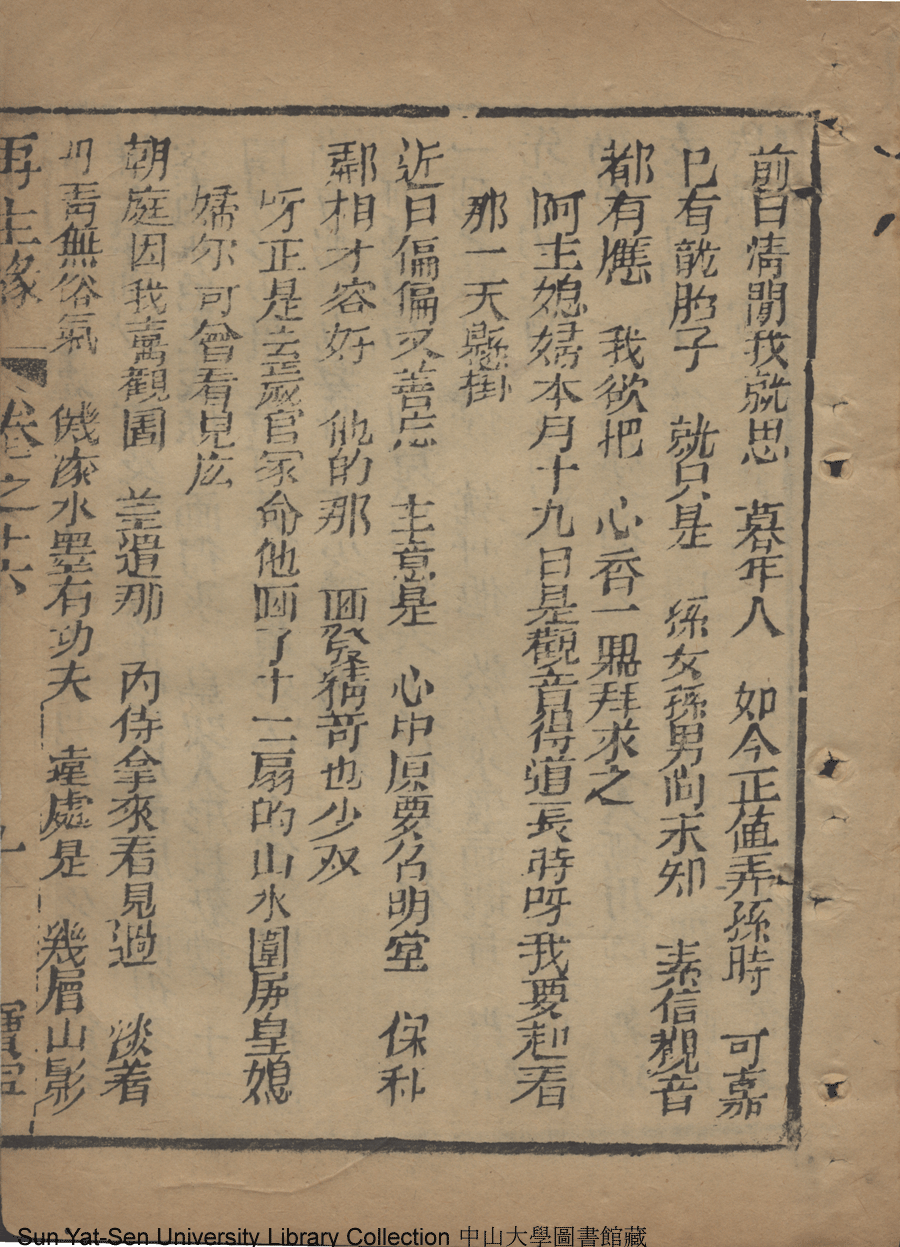 前日情閒我就思　暮年人　如今正值弄孫時　可嘉
已有龍胎子　就只是　孫女孫男尚未知　素信觀音
都有應　我欲把　心香一鼎拜求之
阿主媳婦本月十九日是觀音得道長時呀我要起看
那一天懸掛
近日偏偏又善忘　主意是　心中原要召明堂　保和
鄰相才容好　他的那　画發精竒也少双
呀正是去歲官家命他画了十二扇的山水圍屏皇媳
婦尔可曾看見庅
朝庭因我壽觀圖　差遣那　内侍拿來看見過　淡着
丹青無俗氣　幾添水墨有功夫　遠處是　幾層山影
再生緣　卷之十六　九　寶寧
Sun Yat-Sen University Library Collection 中山大學圖書館藏